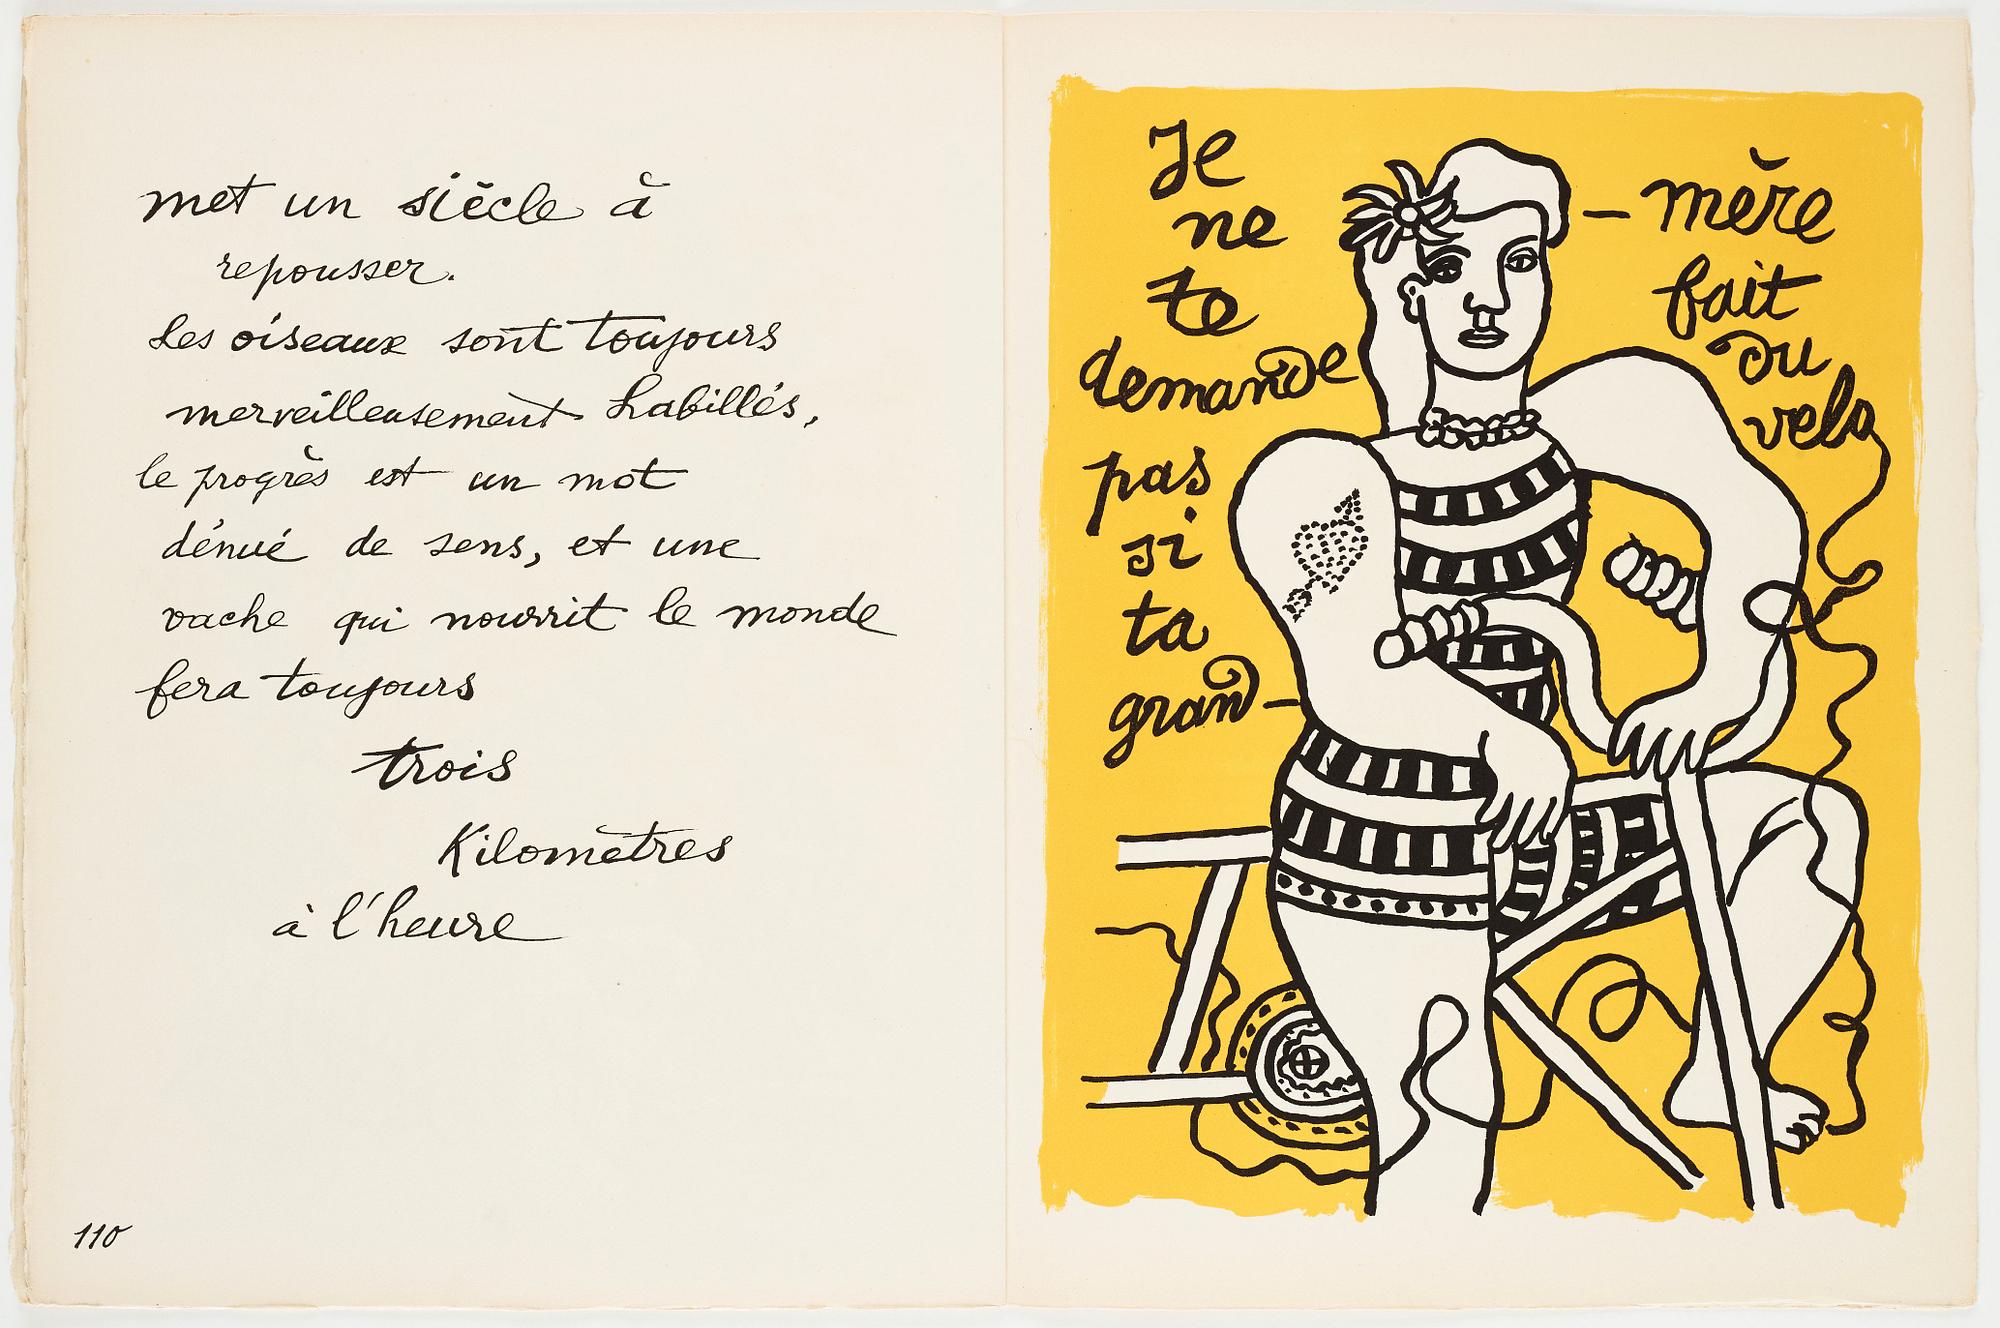 met un siècle à
repousser.
Les oiseaux sont toujours
merveilleusement habillés,
le progrès est un mot
dénué de sens, et une
vache qui nourrit le monde
fera toujours
trois
Kilomètres
à l'heure
110
Je
ne
te
demande
pas
si
ta
grand-
-mère
fait
du
velo